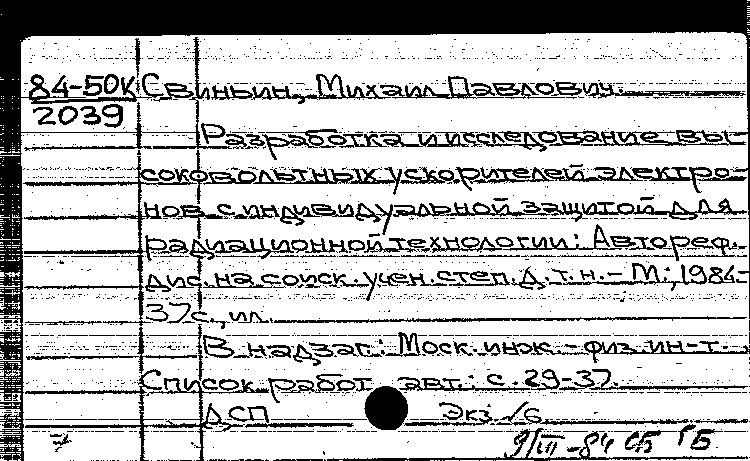 84-50К Свиньин, Михаил Павлович.
2039
Разработка и исследование вы-
соковольтных ускорителей электро-
нов с индивидуальной защитой для
радиационной технологии: Автореф.
дис. на соиск. учен. степ. д. т. н. - М.; 1984-
37с., ил.
В надзаг.: Моск. инж.-физ. ин-т.
Список работ авт.: с. 29-37.
ДСП Экз. 
9/III-84 СБ ГБ